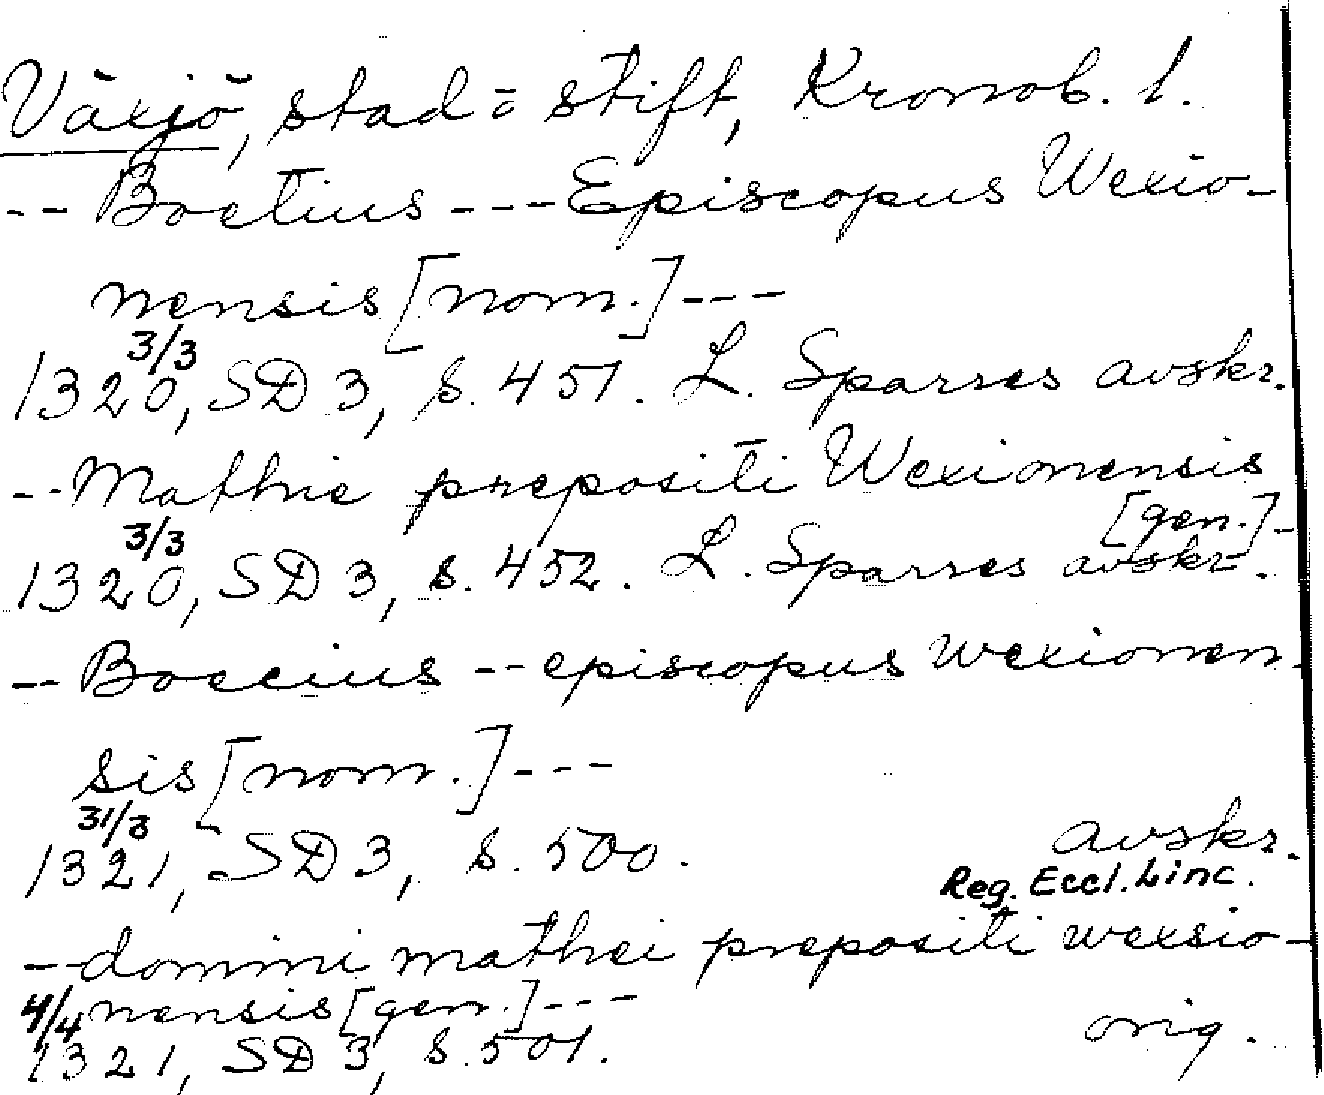 Växjö, stad o stift, Kronob. l.
-- Boetius --- Episcopus Wexio-
nensis [nom.] ---
3/3
1320, SD 3, s. 451. L. Sparres avskr.
-- Mathie prepositi Wexionensis
[gen.] -
3/3
1320, SD 3, s. 452. L. Sparres avskr.
-- Boecius -- episcopus wexionen-
sis [nom.] ---
31/3
1321, SD 3, s. 500. avskr.
Reg. Eccl. Linc.
-- domini mathei prepositi wexsio-
nensis [gen.] ---
4/4
1321, SD 3, s. 501. orig.